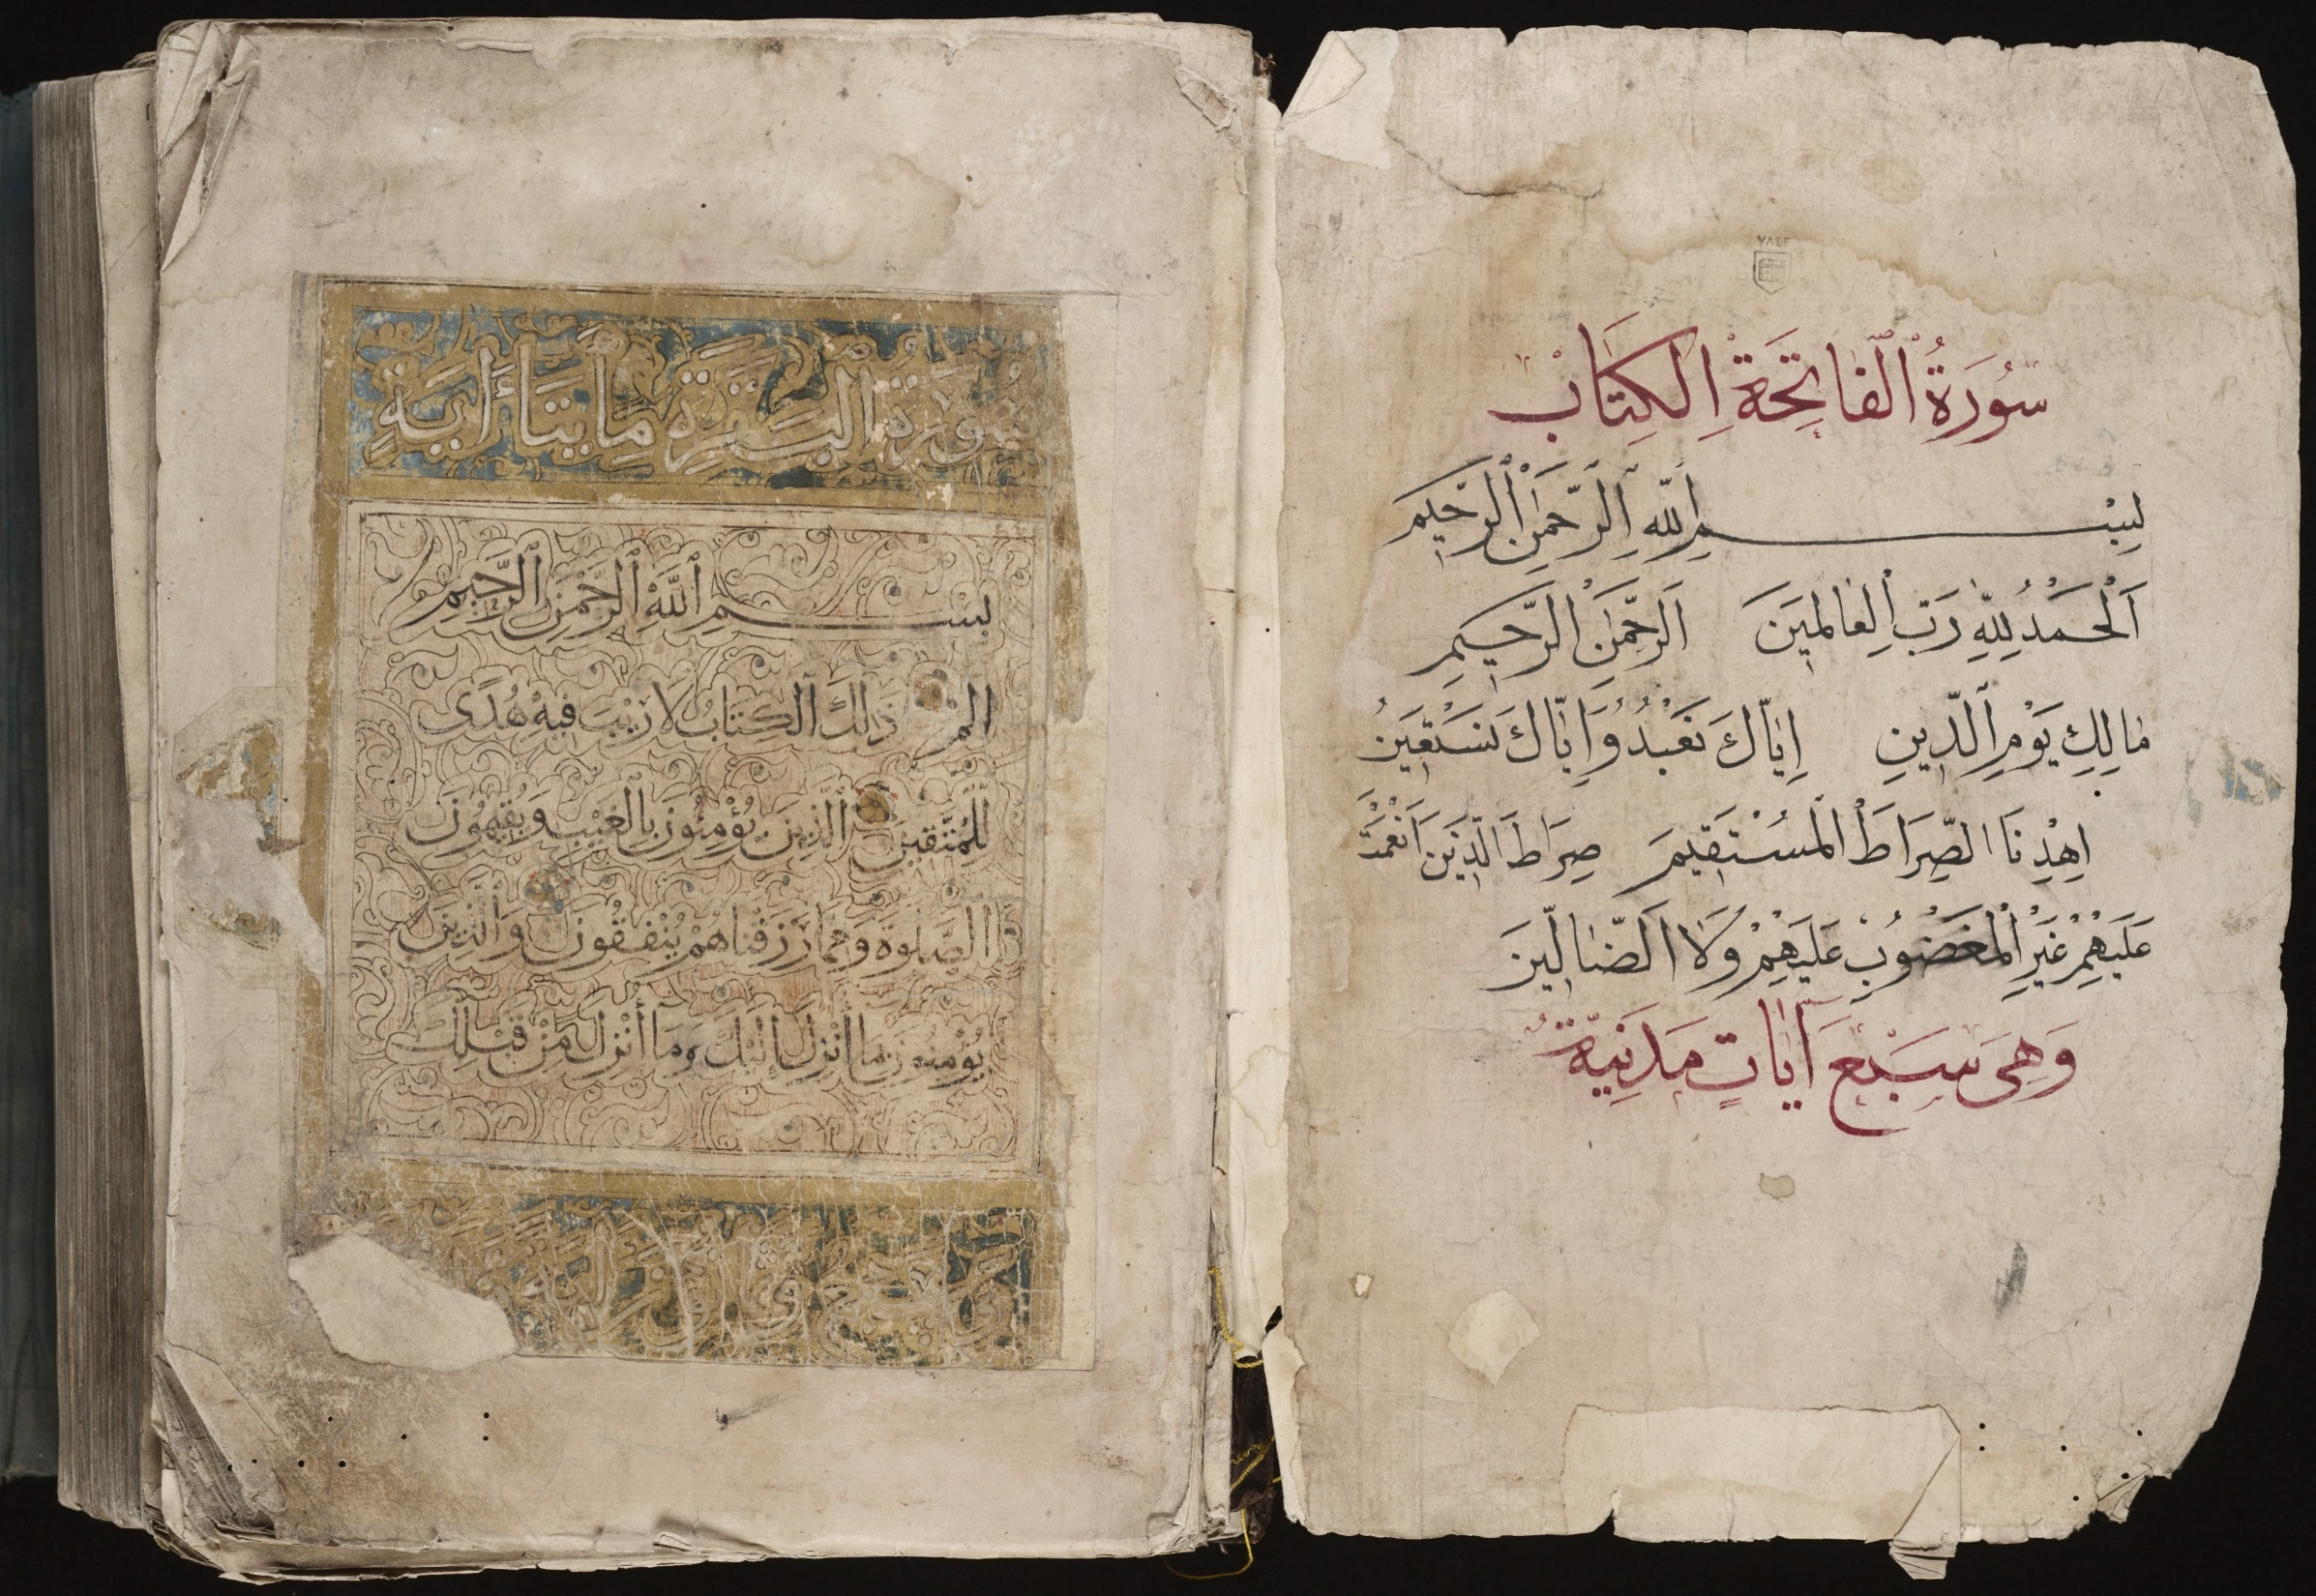 YALE
سُورَةُ الْفَاتِحَةِ الْكِتَابْ
بِسْمِ اللّٰهِ الرَّحْمٰنِ الرَّحِيمِ
اَلْحَمْدُ لِلّٰهِ رَبِّ الْعَالَمِينَ الرَّحْمٰنِ الرَّحِيمِ
مَالِكِ يَوْمِ الدِّينِ اِيَّاكَ نَعْبُدُ وَاِيَّاكَ نَسْتَعِينُ
اِهْدِنَا الصِّرَاطَ الْمُسْتَقِيمَ صِرَاطَ الَّذِينَ اَنْعَمْتَ
عَلَيْهِمْ غَيْرِ الْمَغْضُوبِ عَلَيْهِمْ وَلَا الضَّالِّينَ
وَهِىَ سَبْعَ آيَاتٍ مَدَنِيَّةٌ
سُورَةُ الْبَقَرَةِ مِأَيَتَا أَيَةٍ
بِسْمِ ٱللَّهِ ٱلرَّحْمَٰنِ ٱلرَّحِيمِ
الم ذَلِكَ ٱلْكِتَابُ لَا رَيْبَ فِيهِ هُدًى
لِّلْمُتَّقِينَ ٱلَّذِينَ يُؤْمِنُونَ بِالْغَيْبِ وَيُقِيمُونَ
الصَّلَوةَ وَمِمَّا رَزَقْنَاهُمْ يُنْفِقُونَ وَٱلَّذِينَ
يُؤْمِنُونَ بِمَا أُنْزِلَ إِلَيْكَ وَمَا أُنْزِلَ مِنْ قَبْلِكَ